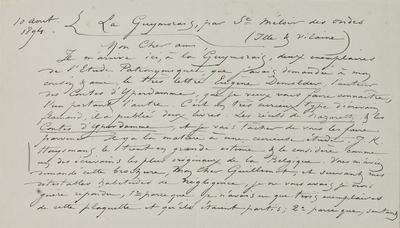 10 août 1894
La Guymorais, par St Meloir des ondes
(Ille & Vilaine)
Mon Cher ami
Il m'arrive ici, à la Guymorais, deux exemplaires
de l'Etude Patronymique, que j'avais demandée à mon
cousin, pour le très lettré Eugène Demolder, l'auteur
des Contes d'Yperdamme, que je veux vous faire connaître,
l'un portant l'autre. C'est un très curieux type d'écrivain
flamand, il a publié deux livres. Les récits de Nazareth, & les
Contes d'Yperdamme, et je vais tâcher de vous les faire
parvenir. Il y a là matière à une curieuse étude. J. K.
Huysmans le tient en grande estime & le considère comme
un des écrivains les plus originaux de la Belgique. Vous m'aviez
demandé cette brochure, Mon cher Guillemot, et suivant mes
détestables habitudes de négligence je ne vous avais, je crois
guère répondu, 1° parce que je n'avais eu que trois exemplaires
de cette plaquette et qu'ils étaient partis; 2° parce que, sentant